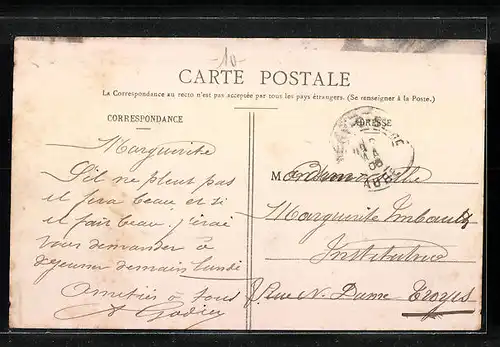 10
CARTE POSTALE
La Correspondance au recto n'est pas acceptée par tous les pays étrangers. (Se renseigner à la Poste.)
CORRESPONDANCE
Marguerite
S'il ne pleut pas
il fera beau et si
il fait beau j'irai
vous demander à
dejeuner demain lundi
Amitiés à tous
ADRESSE
Mademoiselle
Marguerite
Institutrice
Rue N. Dame Troyes
AUBE